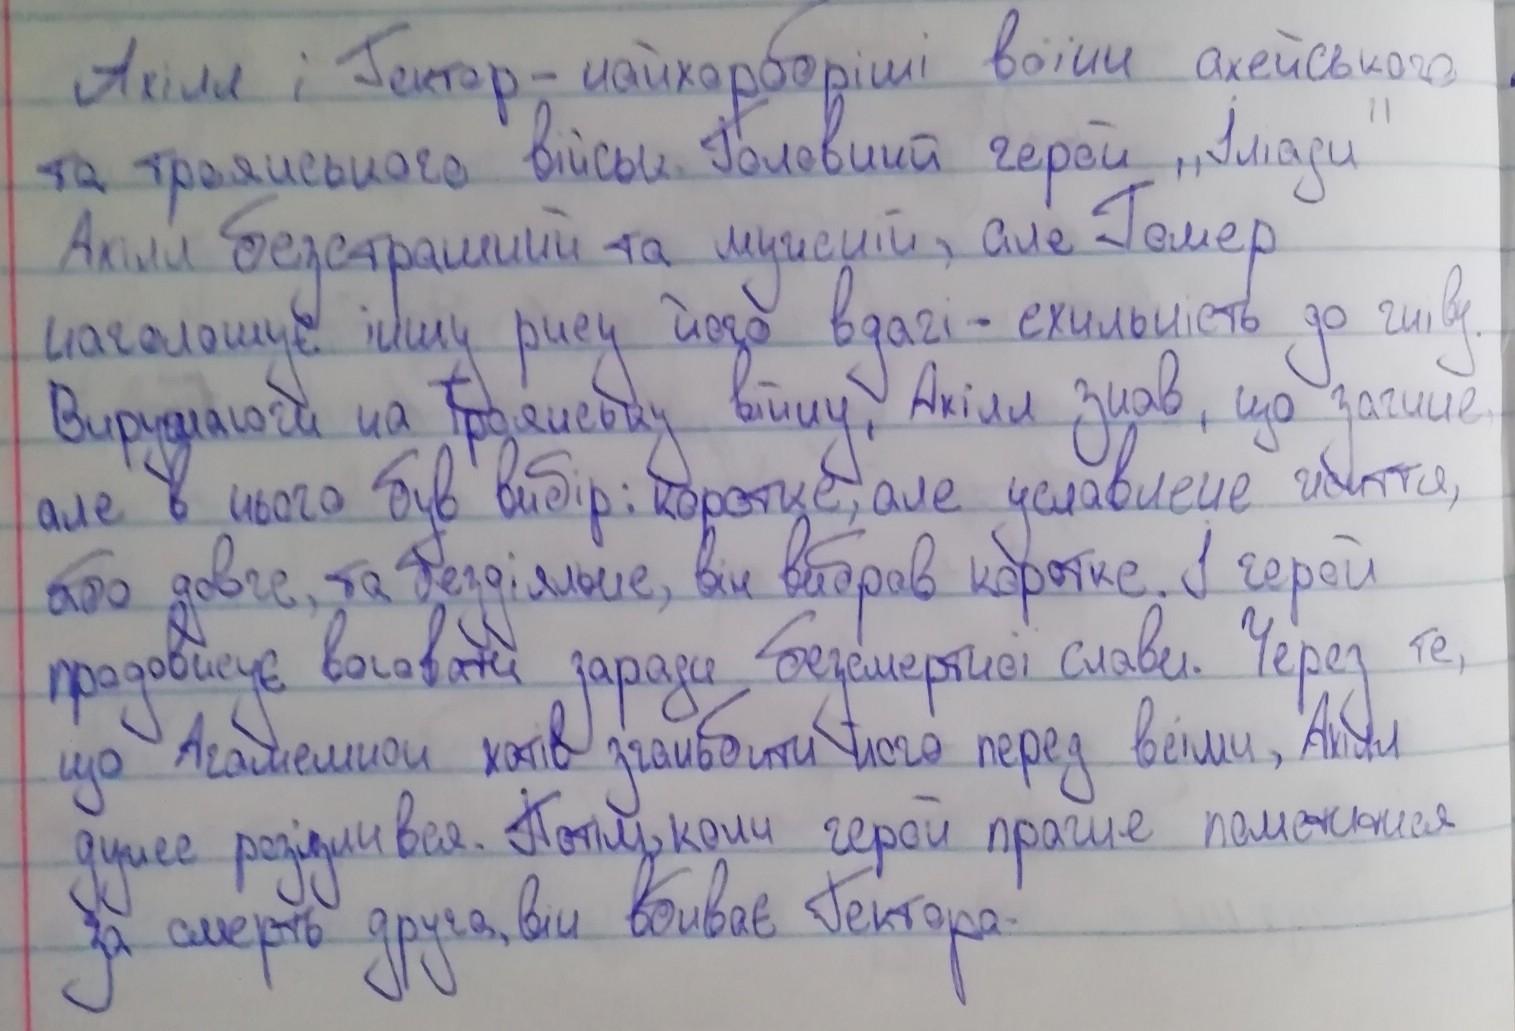 Ахілл і Гектор - найхорборіші воїни ахейського
та троянського військ. Головний герой „Іліади"
Ахілл безстрашний та мужній, але Гомер
наголошує іншу рису його вдачі - схильність до гніву.
Вирушаючи на Троянську війну, Ахілл знав, що загине,
але в нього був вибір: коротке, але уславлене життя,
або довге, та бездіяльне, він вибрав коротке. І герой
продовжує воювати заради безсмертної слави. Через те,
що Агамемнон хотів зганьбити його перед всіми, Ахілл
дуже розізлився. Потім, коли герой прагне помститися
за смерть друга, він вбиває Гектора.